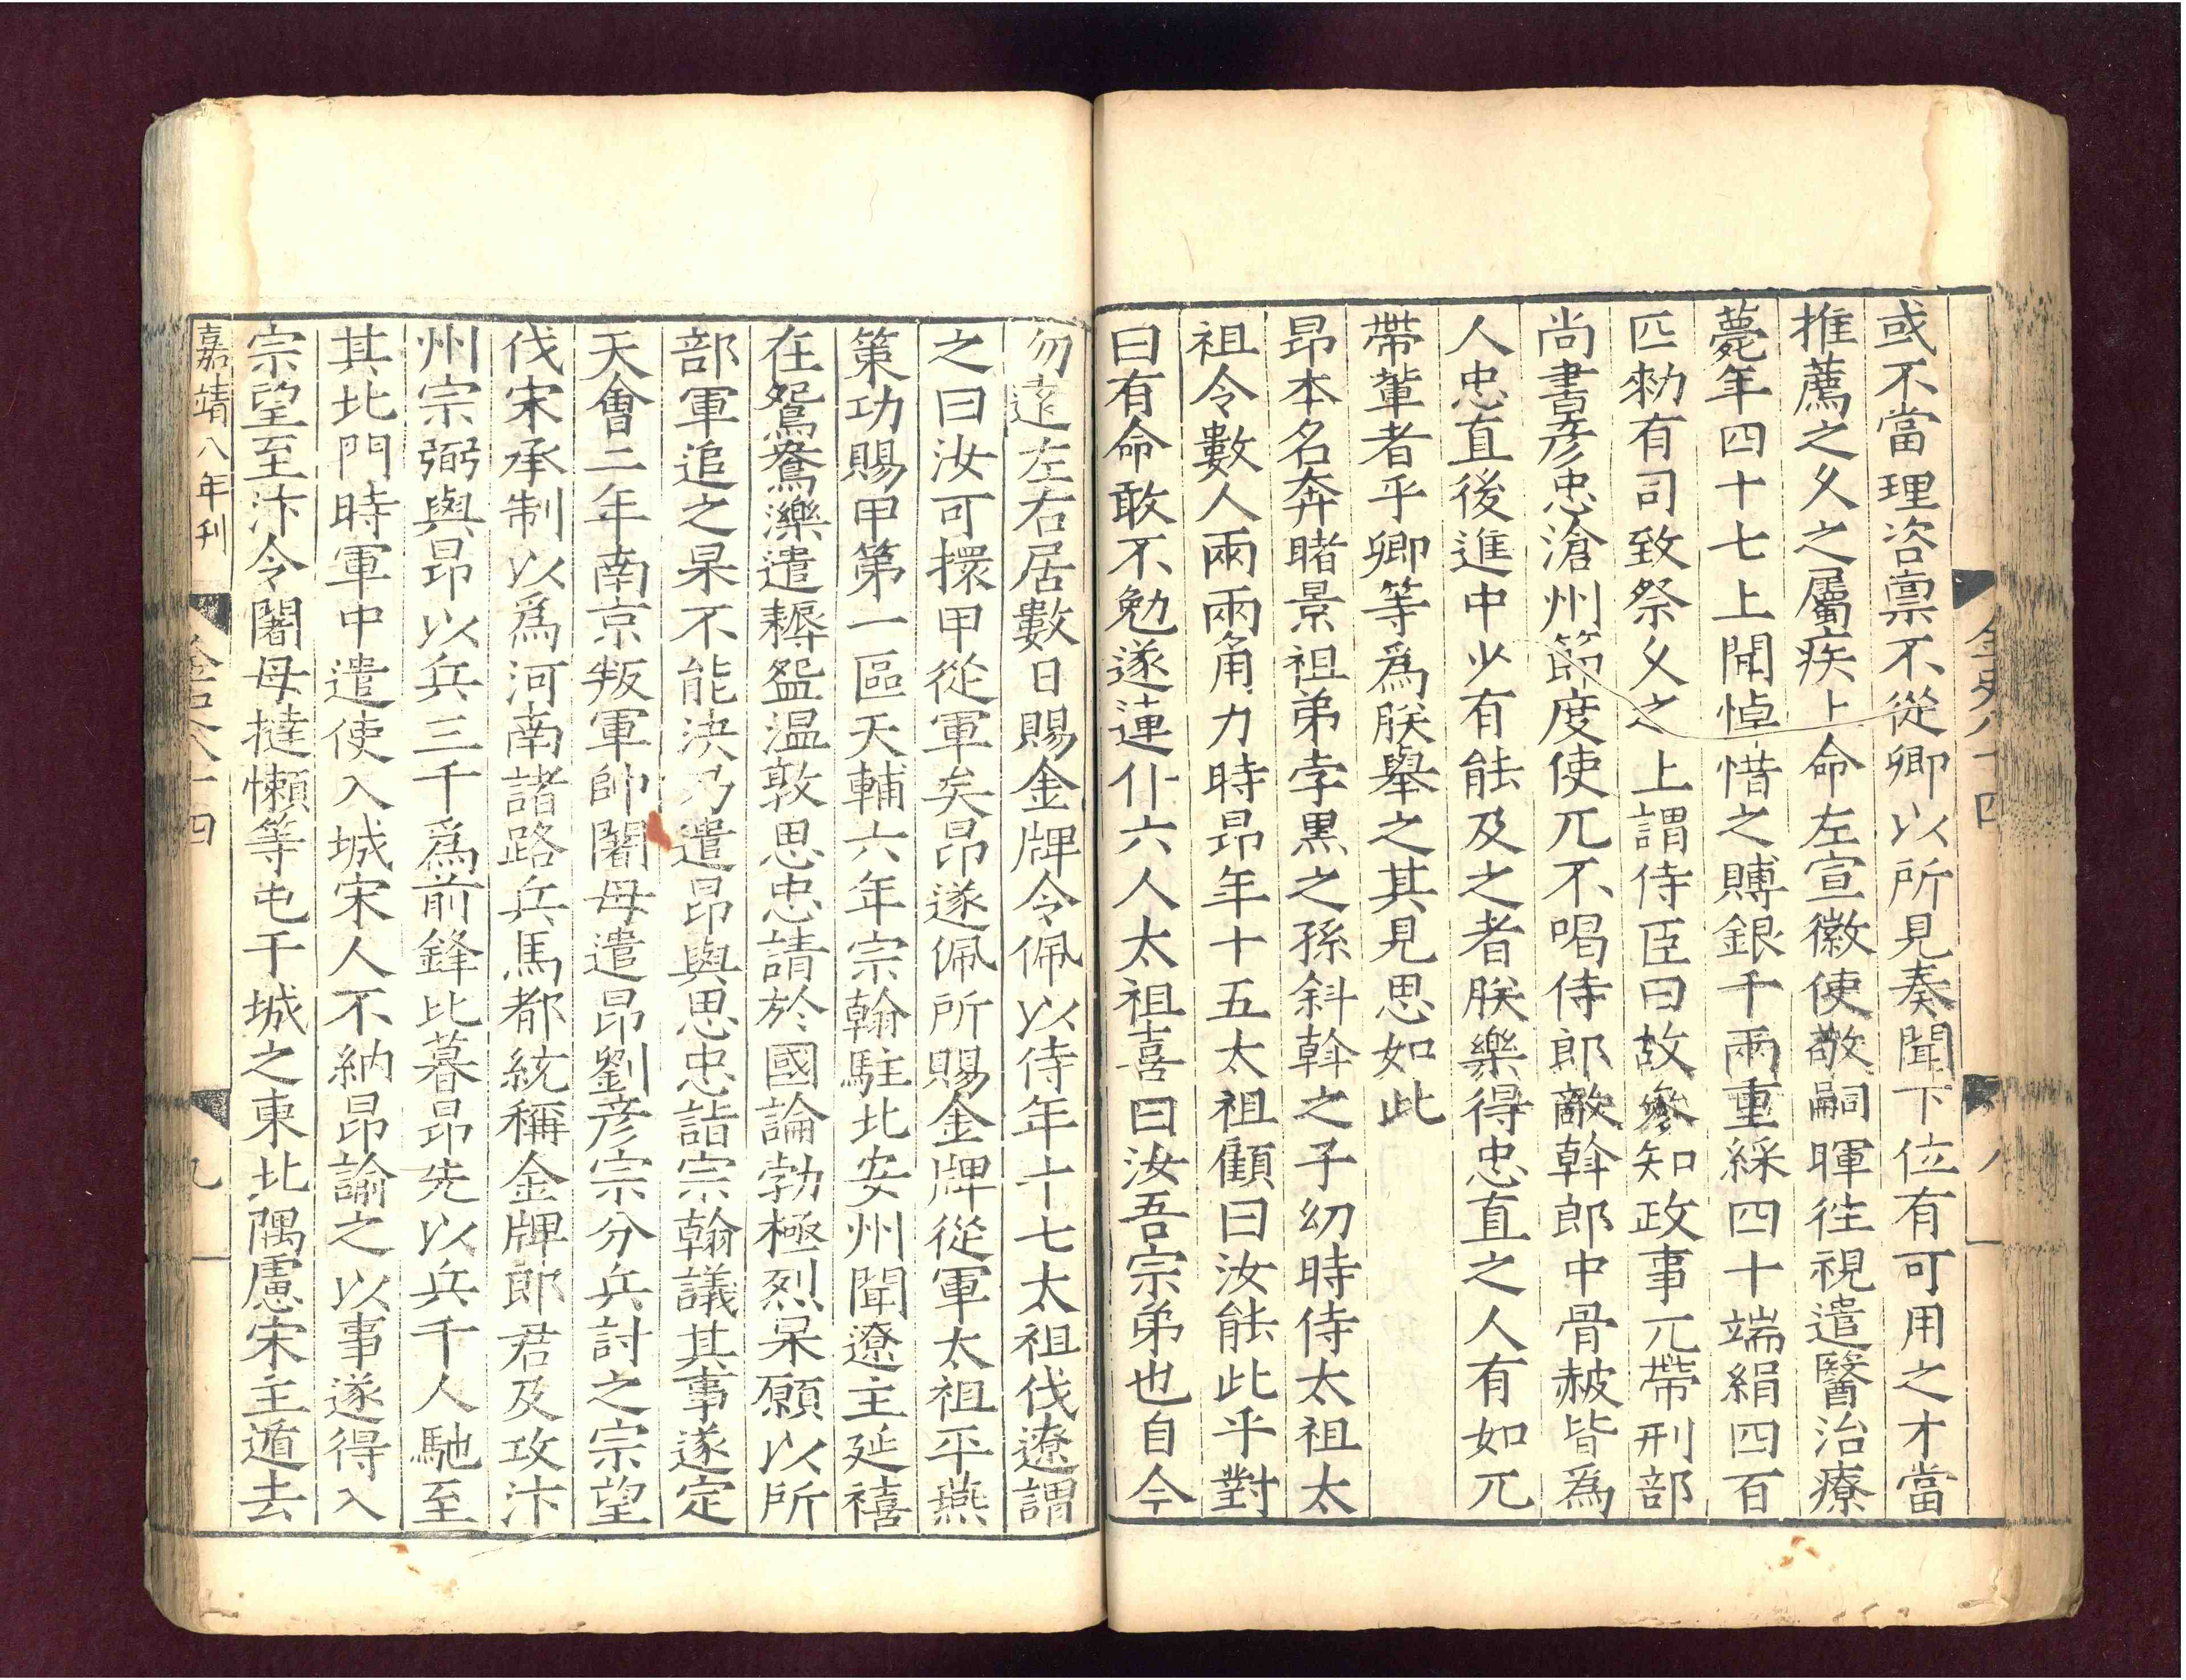 或不當理咨禀不從卿以所見奏聞下位有可用之才當
推薦之久之屬疾上命左宣徽使敬嗣暉徃視遣醫治療
薨年四十七上聞悼惜之賻銀千兩重綵四十端絹四百
匹勑有司致祭久之上謂侍臣曰故參知政事兀帶刑部
尚書彦忠滄州節度使兀不喝侍郎敵斡郎中骨赧皆爲
人忠直後進中少有能及之者朕樂得忠直之人有如兀
帶輩者乎卿等爲朕舉之其見思如此
昂本名奔睹景祖弟孛黑之孫斜斡之子幼時侍太祖太
祖令數人兩兩角力時昂年十五太祖顧曰汝能此乎對
曰有命敢不勉遂連仆六人太祖喜曰汝吾宗弟也自今
金史八十四
八
勿遠左右居數日賜金牌令佩以侍年十七太祖伐遼謂
之曰汝可擐甲從軍矣昂遂佩所賜金牌從軍太祖平燕
策功賜甲第一區天輔六年宗翰駐北安州聞遼主延禧
在鴛鴦濼遣耨盌温敦思忠請於國論勃極烈杲願以所
部軍追之杲不能決乃遣昂與思忠詣宗翰議其事遂定
天會二年南京叛軍帥闍母遣昂劉彦宗分兵討之宗望
伐宋承制以爲河南諸路兵馬都統稱金牌郎君及攻汴
州宗弼與昂以兵三千爲前鋒比暮昂先以兵千人馳至
其北門時軍中遣使入城宋人不納昂諭之以事遂得入
宗望至汴令闍母撻懶等屯千城之東北隅慮宋主遁去
嘉靖八年刊
金史八十四
九